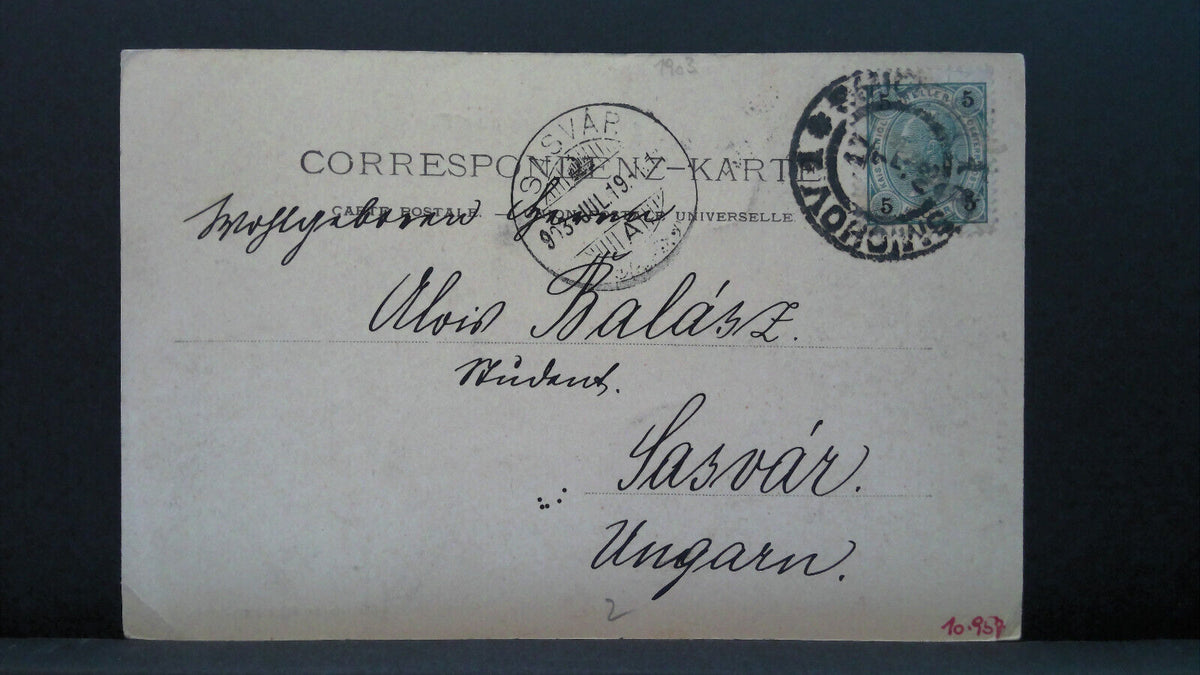 1903
CORRESPONDENZ-KARTE
CARTE POSTALE. — UNION POSTALE UNIVERSELLE.
SASVÁR
903 JUL. 19.
A
5 5
5 5
Wohlgeboren Herrn
Alois Balász.
Student.
Sasvár.
Ungarn.
2
10.957